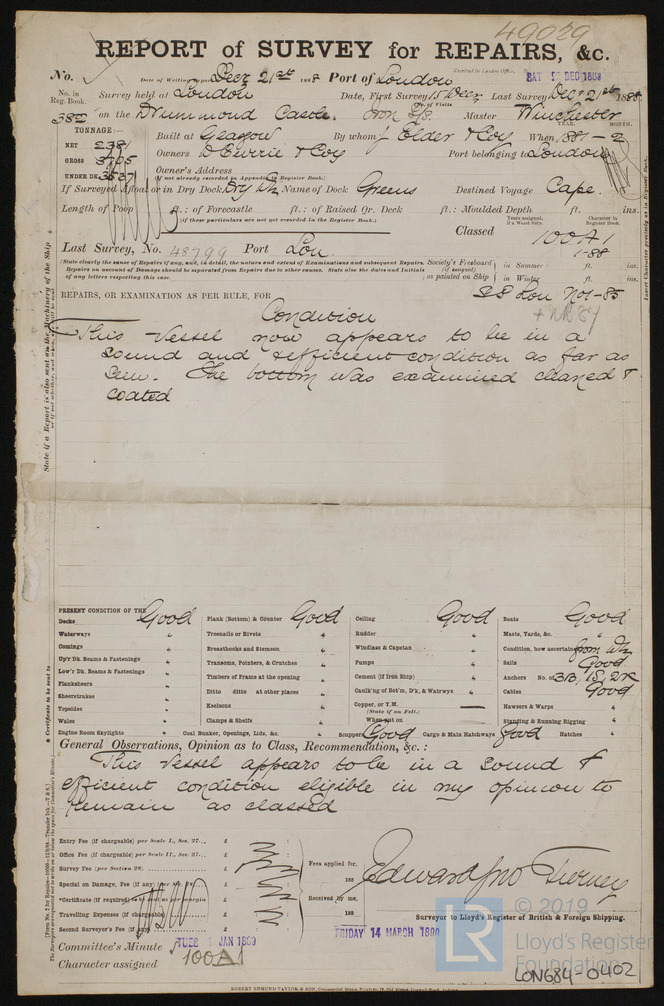 49029
REPORT of SURVEY for REPAIRS, &c.
No. Date of Writing Report Decr 21st 1888 Port of London Received in London Office, SAT 22 DEC 1888
No. in Reg. Book. Survey held at London Date, First Survey 15 Decr Last Survey Decr 21st 1888
382 on the Drummond Castle. Iron S/S. Master Winchester
TONNAGE:— Built at Glasgow By whom J Elder & Coy When 1881 — 2
YEAR. MONTH.
NET 2381
GROSS 3705 Owners D Currie & Coy Port belonging to London
UNDER DK. 3537 Owner's Address
(if not already recorded in Appendix to Register Book.)
If Surveyed Afloat or in Dry Dock Dry Dk Name of Dock Greens Destined Voyage Cape.
Length of Poop ft.: of Forecastle ft.: of Raised Qr. Deck ft.: Moulded Depth ft. ins.
(if these particulars are not yet recorded in the Register Book.)
Years assigned, if a Wood Ship. Character in Register Book.
Classed 100A1
1-88
Last Survey, No. 48799 Port Lon.
(State clearly the cause of Repairs if any, and, in detail, the nature and extent of Examinations and subsequent Repairs.
Repairs on account of Damage should be separated from Repairs due to other causes. State also the dates and Initials
of any letters respecting this case.
Society's Freeboard (if assigned) as painted on Ship in Summer ft. ins.
in Winter ft. ins.
REPAIRS, OR EXAMINATION AS PER RULE, FOR
SS Lon Nov-85
Condition
This Vessel now appears to be in a
sound and efficient condition as far as
seen. The bottom was examined cleaned &
coated
PRESENT CONDITION OF THE
Decks Good Plank (Bottom) & Counter Good Ceiling Good Boats Good
Waterways " Treenails or Rivets " Rudder " Masts, Yards, &c. "
Comings " Breasthooks and Stemson " Windlass & Capstan " Condition, how ascertained from Dk
Up'r Dk. Beams & Fastenings " Transoms, Pointers, & Crutches " Pumps " Sails Good
Low'r Dk. Beams & Fastenings " Timbers of Frame at the opening " Cement (if Iron Ship) " Anchors No. of 3B, 1S, 2K
Planksheers " Ditto ditto at other places " Caulk'ng of Bot'm, D'k, & Watrwys " Cables Good
Sheerstrakes " Keelsons " Copper, or Y.M. — Hawsers & Warps "
Topsides " (State if on Felt.)
Wales " Clamps & Shelfs " When put on — Standing & Running Rigging "
Engine Room Skylights " Coal Bunker, Openings, Lids, &c. " Scuppers Good Cargo & Main Hatchways Good Hatches "
General Observations, Opinion as to Class, Recommendation, &c. :
This Vessel appears to be in a sound &
efficient condition eligible in my opinion to
remain as classed
Entry Fee (if chargeable) per Scale I., Sec. 27... £
Office Fee (if chargeable) per Scale II., Sec. 27... £
Survey Fee (per Section 28) £
Special on Damage, Fee (if any) £
*Certificate (if required) to be sent as per margin
Travelling Expenses (if chargeable) £
Second Surveyor's Fee (if any) £
Fees applied for, 188
Received by me, 188
Edward Jno Tierney
Surveyor to Lloyd's Register of British & Foreign Shipping.
Committee's Minute TUES 1 JAN 1889
FRIDAY 14 MARCH 1890
Character assigned 100A1
ROBERT EDMUND TAYLOR & SON
© 2019
LR
Lloyd's Register
Foundation
LON684-0402